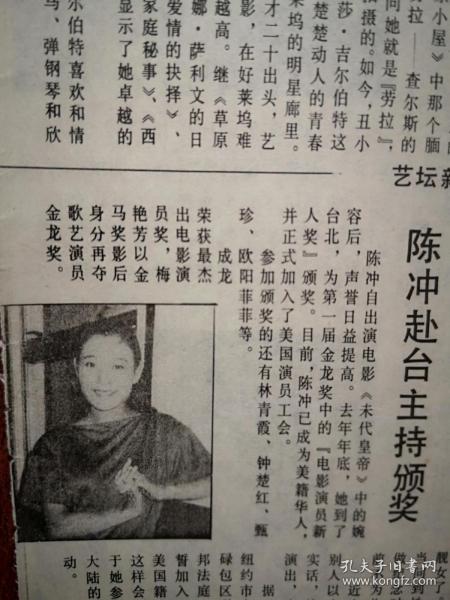 小屋》中那个腼
劳拉——查尔斯的
问她就是『劳拉』,
拍摄的。如今,丑小
莎·吉尔伯特这
楚楚动人的青春
莱坞的明星廊里。
才二十出头,艺
影,在好莱坞难
越高。继《草原
娜·萨利文的日
爱情的抉择》、
家庭秘事》、《西
显示了她卓越的
尔伯特喜欢和情
马、弹钢琴和欣
艺坛新
陈冲赴台主持颁奖
陈冲自出演电影《末代皇帝》中的婉
容后,声誉日益提高。去年年底,她到了
台北,为第一届金龙奖中的『电影演员新
人奖』颁奖。目前,陈冲已成为美籍华人,
并正式加入了美国演员工会。
参加颁奖的还有林青霞、钟楚红、甄
珍、欧阳菲菲等。
成龙
荣获最杰
出电影演
员奖,梅
艳芳以金
马奖影后
身分再夺
歌艺演员
金龙奖。
靓女了
近
别人以
实话,
演出,
据
纽约市
碌包区
邦法庭
誓加入
美国籍
这样会
于她参
大陆的
动。
孔夫子旧书网